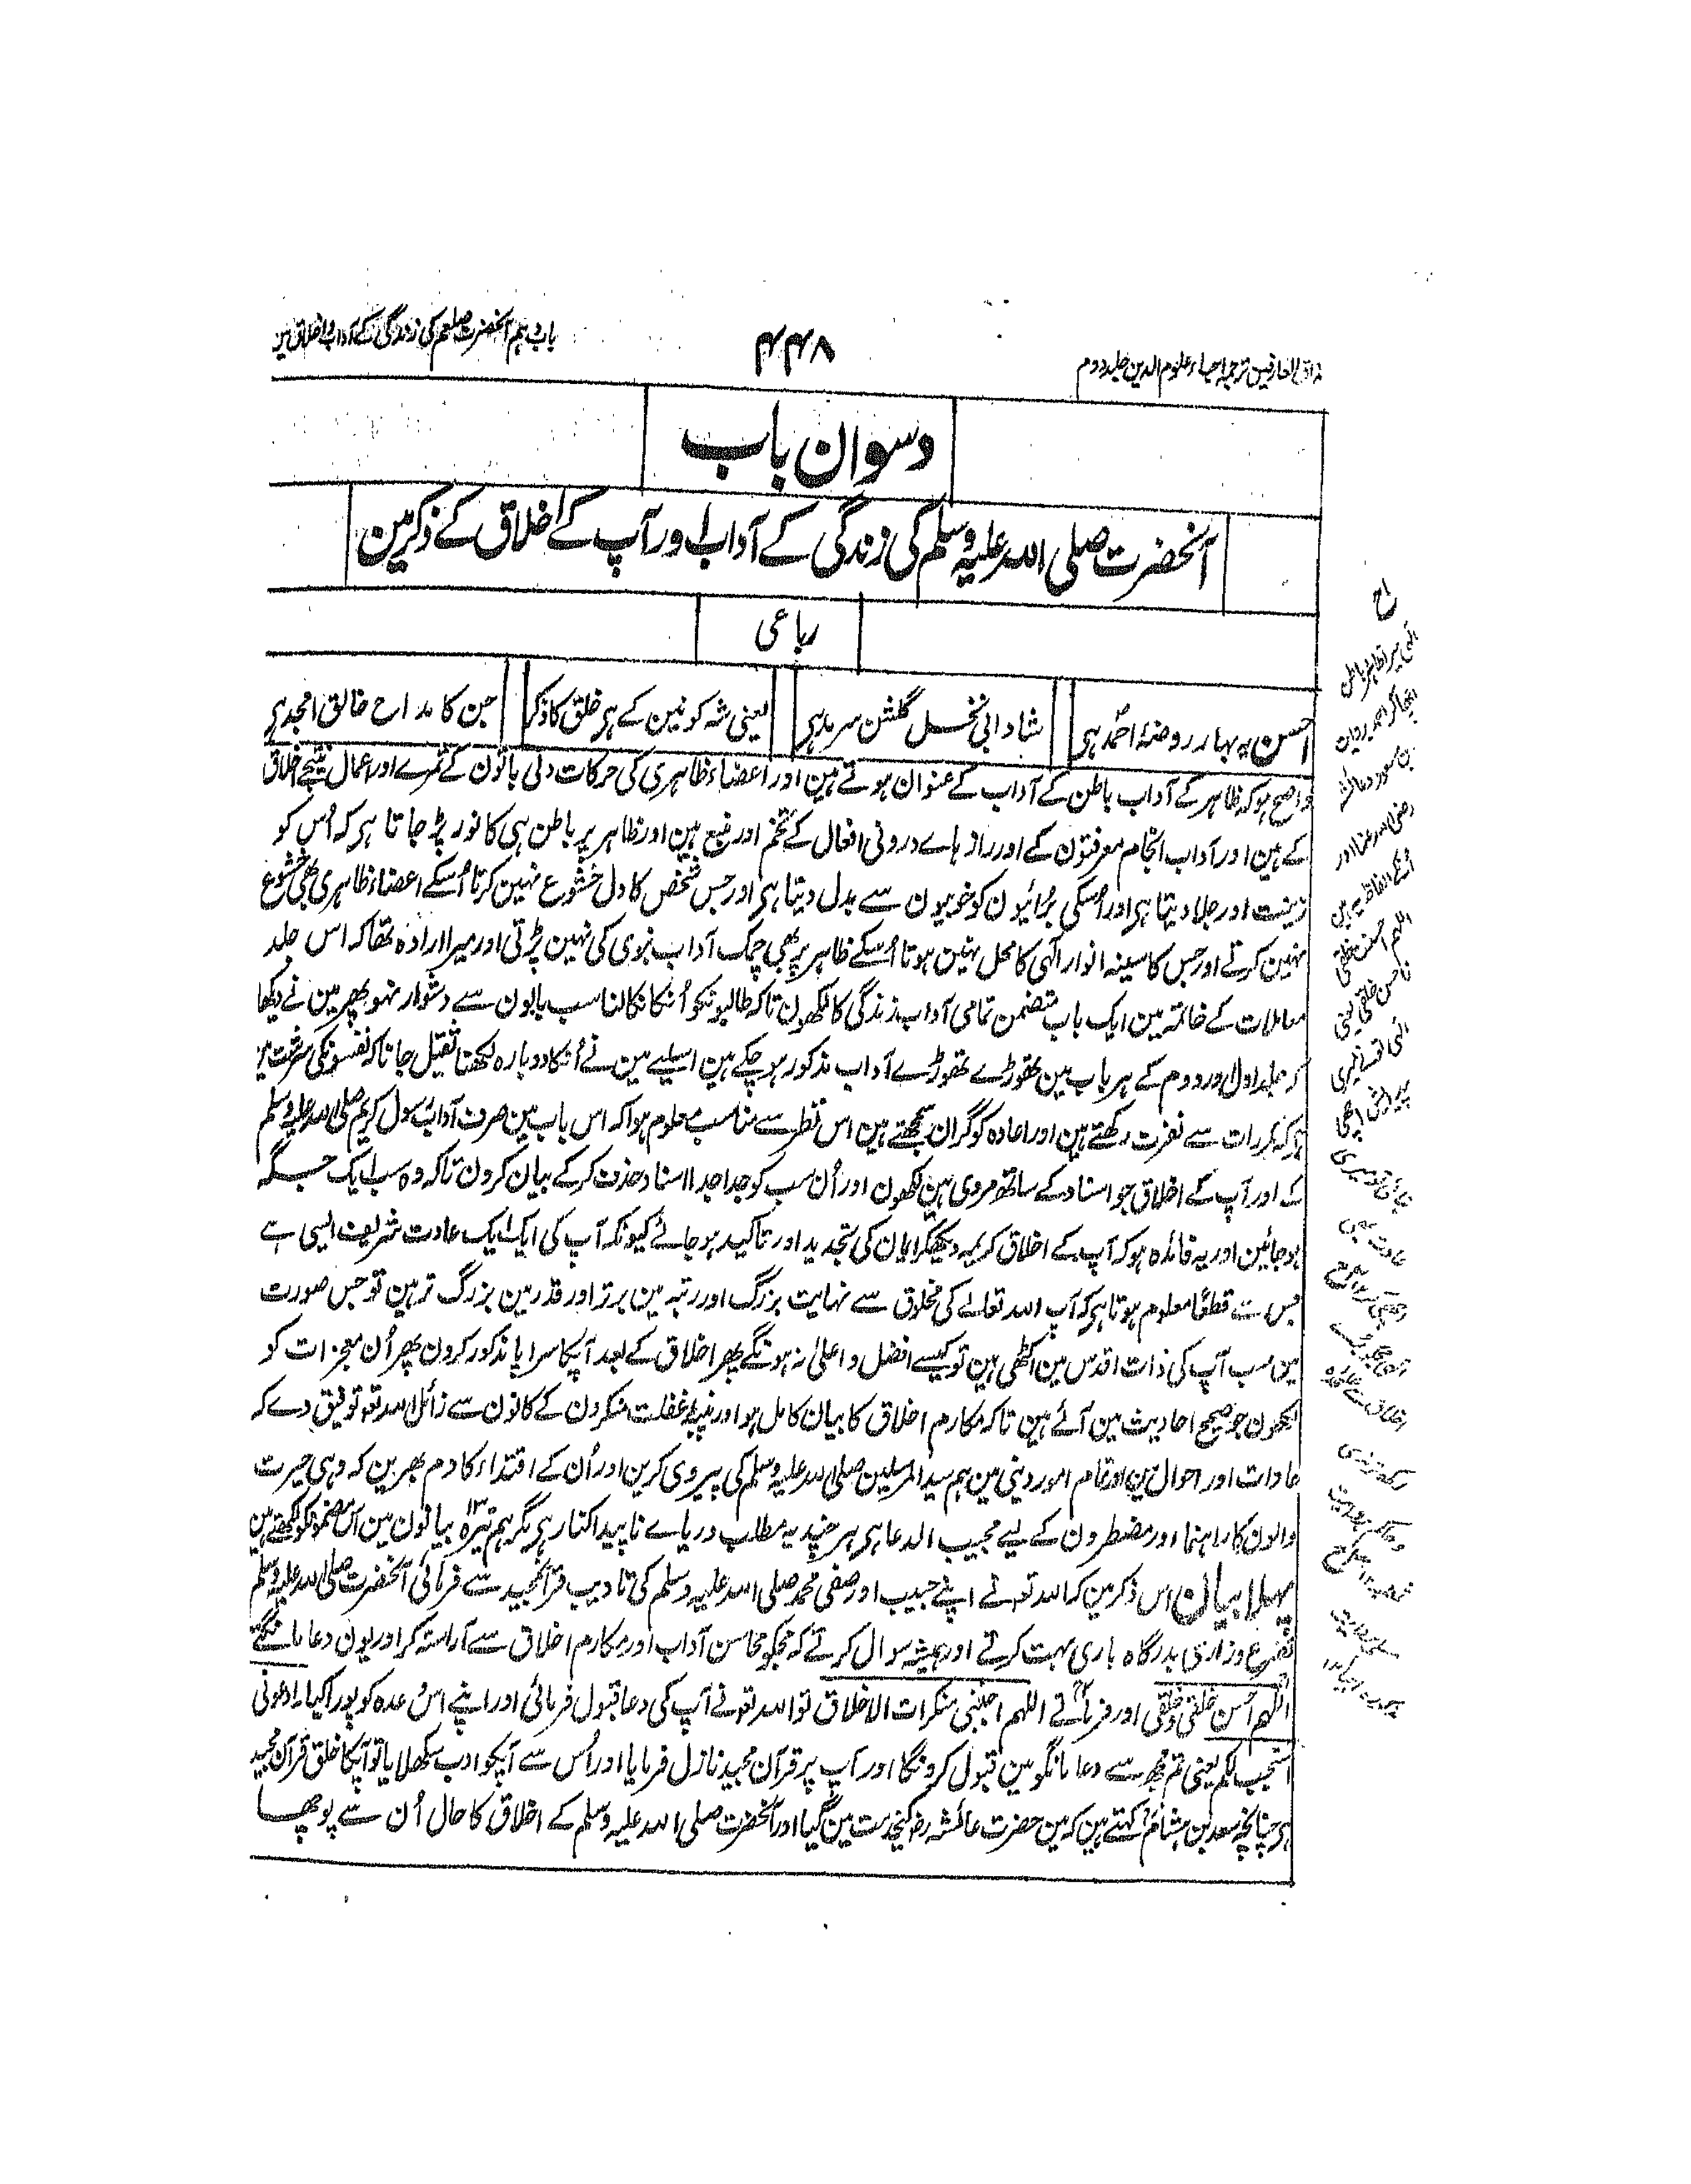 مذاق العارفین ترجمہ احیاء علوم الدین جلد دوم
۴۴۸
باب دہم آنحضرت صلعم کی زندگی کے آداب و اخلاق مین
دسوان باب
آنحضرت صلی اللہ علیہ وسلم کی زندگی کے آداب اور آپ کے اخلاق کے ذکر مین
رباعی
احسن یہ بہار روضۂ احمد ہی
شادابی نخل گلشن سرمد ہی
یعنی شہ کونین کے ہر خلق کا ذکر
جن کا مداح خالق امجد ہی
واضح ہو کہ ظاہر کے آداب باطن کے آداب کے عنوان ہوتے ہین اور اعضاء ظاہری کی حرکات دلی باتون کے ثمرے اور اعمال نتیجے اخلاق
کے ہین اور آداب انجام معرفتون کے اور راز ہاے درونی افعال کے تخم اور منبع ہین اور ظاہر پر باطن ہی کا نور پڑ جاتا ہر کہ اُس کو
زینت اور جلا دیتا ہی اور اُسکی بُرائیون کو خوبیون سے بدل دیتا ہی اور جس شخص کا دل خشوع نہین کرتا اُسکے اعضاء ظاہری بھی خشوع
نہین کرتے اور جس کا سینہ انوار الٰہی کا محل نہین ہوتا اُسکے ظاہر پر بھی چمک آداب نبوی کی نہین پڑتی اور میرا ارادہ تھا کہ اس جلد
معاملات کے خاتمہ مین ایک باب متضمن تمامی آداب زندگی کا لکھون تاکہ طالبونکو اُنکا نکالنا سب بابون سے دشوار نہو پھر مین نے دیکھا
کہ جلد اول اور دوم کے ہر باب مین تھوڑے تھوڑے آداب مذکور ہو چکے ہین اسلیے مین نے اُنکا دوبارہ لکھنا ثقیل جانا کہ نفسونکی سرشت مین
ہی کہ مکررات سے نفرت رکھتے ہین اور اعادہ کو گران سمجھتے ہین اس نظر سے مناسب معلوم ہوا کہ اس باب مین صرف آداب رسول کریم صلی اللہ علیہ وسلم
کے اور آپ کے اخلاق جو اسناد کے ساتھ مروی ہین لکھون اور اُن سب کو جدا جدا اسناد حذف کر کے بیان کرون تاکہ وہ سب ایک جگہ
ہو جائین اور یہ فائدہ ہو کہ آپ کے اخلاق کریمہ دیکھکر ایمان کی تجدید اور تاکید ہو جائے کیونکہ آپ کی ایک ایک عادت شریف ایسی ہے
جس سے قطعًا معلوم ہوتا ہی کہ آپ اللہ تعالے کی مخلوق سے نہایت بزرگ اور رتبہ مین برتر اور قدر مین بزرگ تر ہین تو جس صورت
مین سب آپ کی ذات اقدس مین اکٹھی ہین تو کیسے افضل و اعلیٰ نہ ہونگے پھر اخلاق کے بعد آپکا سراپا مذکور کرون پھر اُن معجزات کو
لکھون جو صحیح احادیث مین آئے ہین تاکہ مکارم اخلاق کا بیان کامل ہو اور پنبۂ غفلت منکرون کے کانون سے زائل اللہ تعو توفیق دے کہ
عادات اور احوال مین اور تمام امور دینی مین ہم سید المرسلین صلی اللہ علیہ وسلم کی پیروی کرین اور اُن کے اقتداء کا دم بھرین کہ وہی حیرت
والون کا راہنما اور مضطرون کے لیے مجیب الدعا ہی ہر چند یہ مطلب دریاے ناپیدا کنار ہی مگر ہم تیرہ ۱۳ بیانون مین اس مضمونکو لکھتے ہین
پہلا بیان اس ذکر مین کہ اللہ تعو نے اپنے حبیب اور صفی محمد صلی اللہ علیہ وسلم کی تادیب قرآنمجید سے فرمائی آنحضرت صلی اللہ علیہ وسلم
تضرع و زاری بدرگاہ باری بہت کرتے اور ہمیشہ سوال کرتے کہ مجکو محاسن آداب اور مکارم اخلاق سے آراستہ کر اور یون دعا مانگتے
اللہم حُسن خلقی و خُلقی اور فرماتے اللہم اجنبنی منکرات الاخلاق تو اللہ تعو نے آپ کی دعا قبول فرمائی اور اپنے اس وعدہ کو پورا کیا۔ ادعونی
استجیب لکم یعنی تم مجھ سے دعا مانگو مین قبول کرونگا اور آپ پر قرآن مجید نازل فرمایا اور اُس سے آپکو ادب سکھلایا تو آپکا خلق قرآن مجید
ہی چنانچہ سعد بن ہشام کہتے ہین کہ مین حضرت عائشہ رض کیخدمت مین گیا اور آنحضرت صلی اللہ علیہ وسلم کے اخلاق کا حال اُن سے پوچھا
الٰہی میرا ظاہر باطن
اچھا کر احمد بروایت
بن مسعود و عائشہ
رضی اللہ عنہما اور
اُنکے الفاظ یہ ہین
اللہم احسنت خلقی
فاحسن خلقی یعنی
الٰہی تو نے میری
پیدائش اچھی